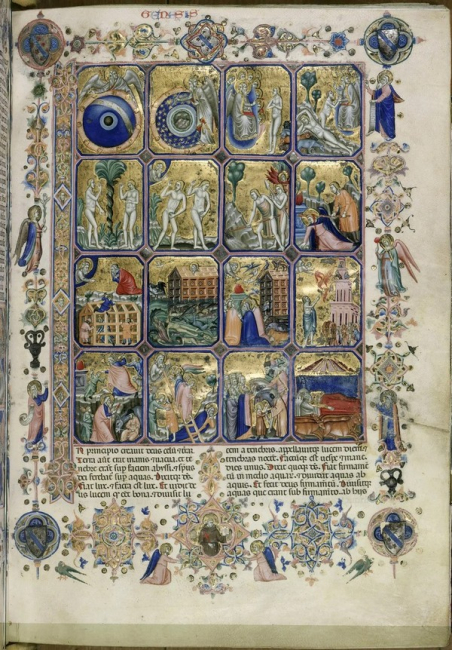 GENESIS
N principio creauit deus celū
terra aūt erat inanis et uacua. et te
nebre erāt sup faciem abyssi. et spūs
dei ferebat sup aquas. Dixitqȝ ds.
Fiat lux. et facta est lux. Et uidit de
us lucem bona. et diuisit lu
cem a tenebris. appellauitqȝ lucem diem et
tenebras nocte. Factūqȝ est uespe et mane
dies unus. Dixit quoqȝ ds. Fiat firmamē
tū in medio aquar. et diuidat aquas ab
aquis. Et fecit deus firmamētū. diuisitqȝ
aquas que erant sub firmamēto. ab hiis